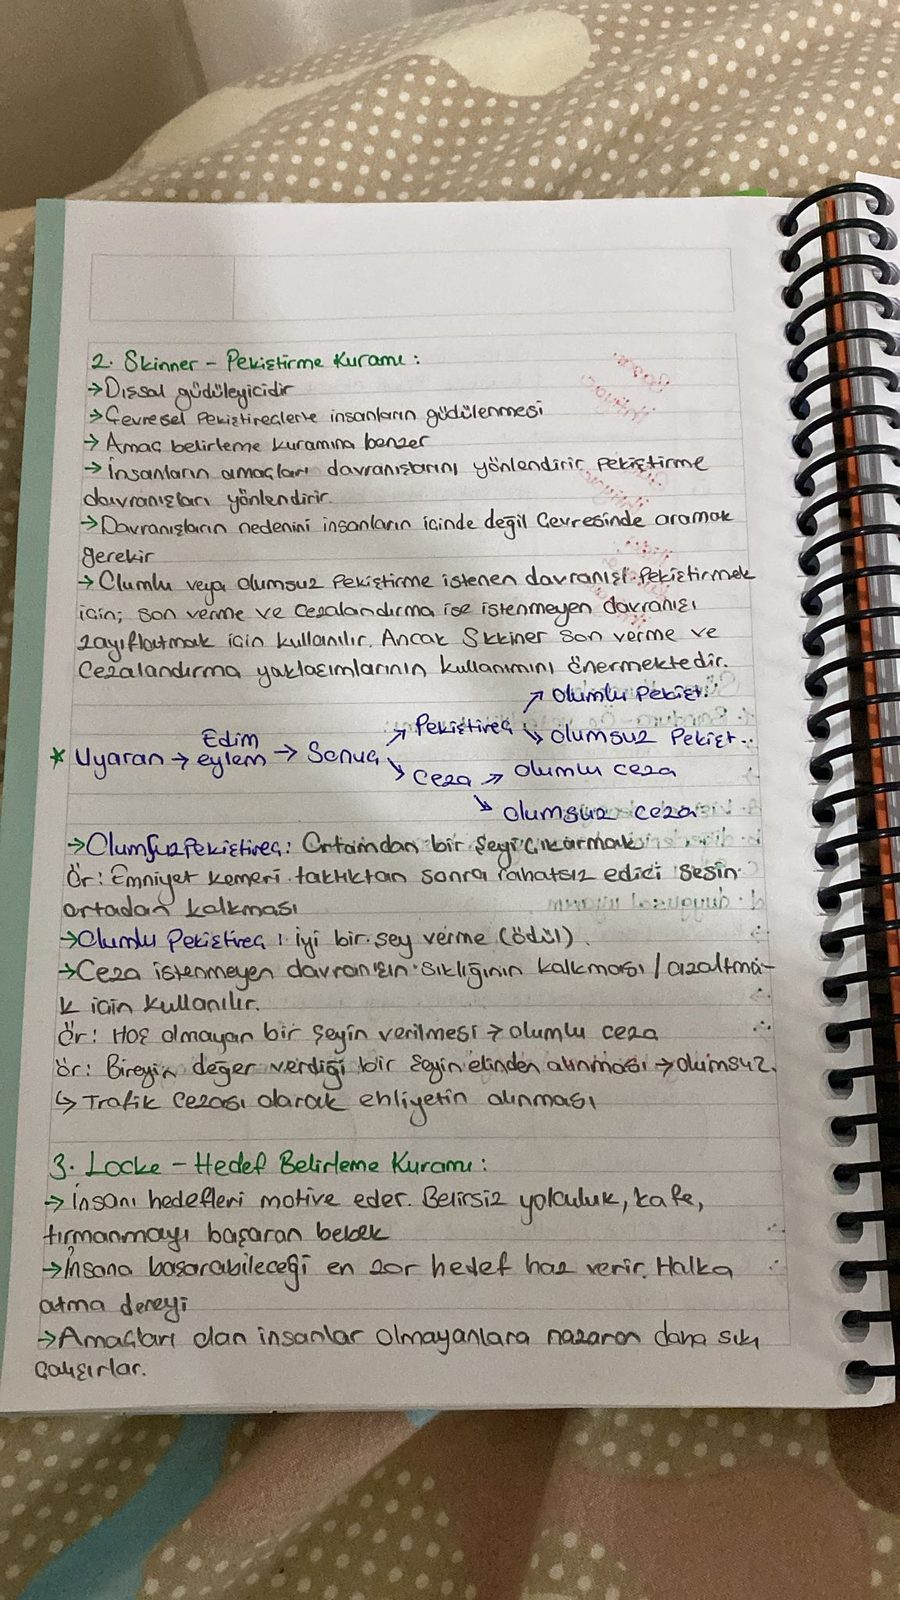 2. Skinner - Pekiştirme Kuramı:
→ Dışsal güdüleyicidir
→ Çevresel Pekiştireçlerle insanların güdülenmesi
→ Amaç belirleme kuramına benzer
→ İnsanların amaçları davranışlarını yönlendirir, pekiştirme
davranışları yönlendirir.
→ Davranışların nedenini insanların içinde değil Çevresinde aramak
gerekir
→ Olumlu veya olumsuz Pekiştirme istenen davranışı Pekiştirmek
için; son verme ve cezalandırma ise istenmeyen davranışı
zayıflatmak için kullanılır. Ancak Skkiner son verme ve
Cezalandırma yaklaşımlarının kullanımını önermektedir.
↗ Olumlu Pekişt.
↗ Pekiştireç ↘ olumsuz Pekişt..
Edim
* Uyaran → eylem → Sonuç
↘ Ceza → olumlu ceza
↘ olumsuz ceza
→ Olumsuz Pekiştireç: Ortamdan bir Şeyi Çıkarmak
Ör: Emniyet kemeri taktıktan sonra rahatsız edici sesin
ortadan kalkması
→ Olumlu Pekiştireç: iyi bir şey verme (ödül).
→ Ceza istenmeyen davranışın sıklığının kalkması / azaltma-
k için kullanılır.
ör: Hoş olmayan bir şeyin verilmesi → olumlu ceza
ör: Bireyin değer verdiği bir şeyin elinden alınması → olumsuz.
↳ Trafik cezası olarak ehliyetin alınması
3. Locke - Hedef Belirleme Kuramı:
→ İnsanı hedefleri motive eder. Belirsiz yolculuk, kafe,
tırmanmayı başaran bebek
→ İnsana başarabileceği en zor hedef haz verir. Halka
atma deneyi
→ Amaçları olan insanlar olmayanlara nazaran daha sıkı
Çalışırlar.